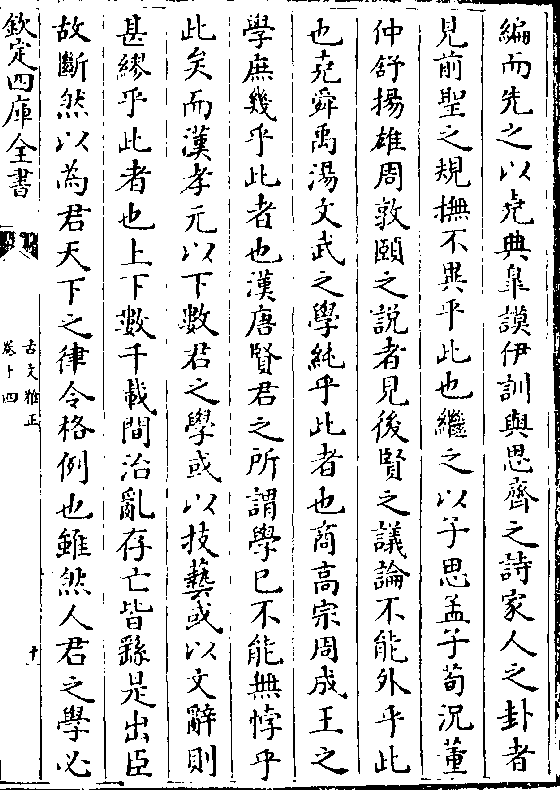 編而先之以堯典臯謨伊訓與思齊之詩家人之卦者
見前聖之規撫不異乎此也繼之以子思孟子荀況董
仲舒揚雄周敦頤之説者見後賢之議論不能外乎此
也堯舜禹湯文武之學純乎此者也商高宗周成王之
學庶幾乎此者也漢唐賢君之所謂學已不能無悖乎
此矣而漢孝元以下數君之學或以技藝或以文辭則
甚繆乎此者也上下數千載間治亂存亡皆繇是出臣
故斷然以為君天下之律令格例也雖然人君之學必
欽定四庫全書
古文雅正
卷十四
十